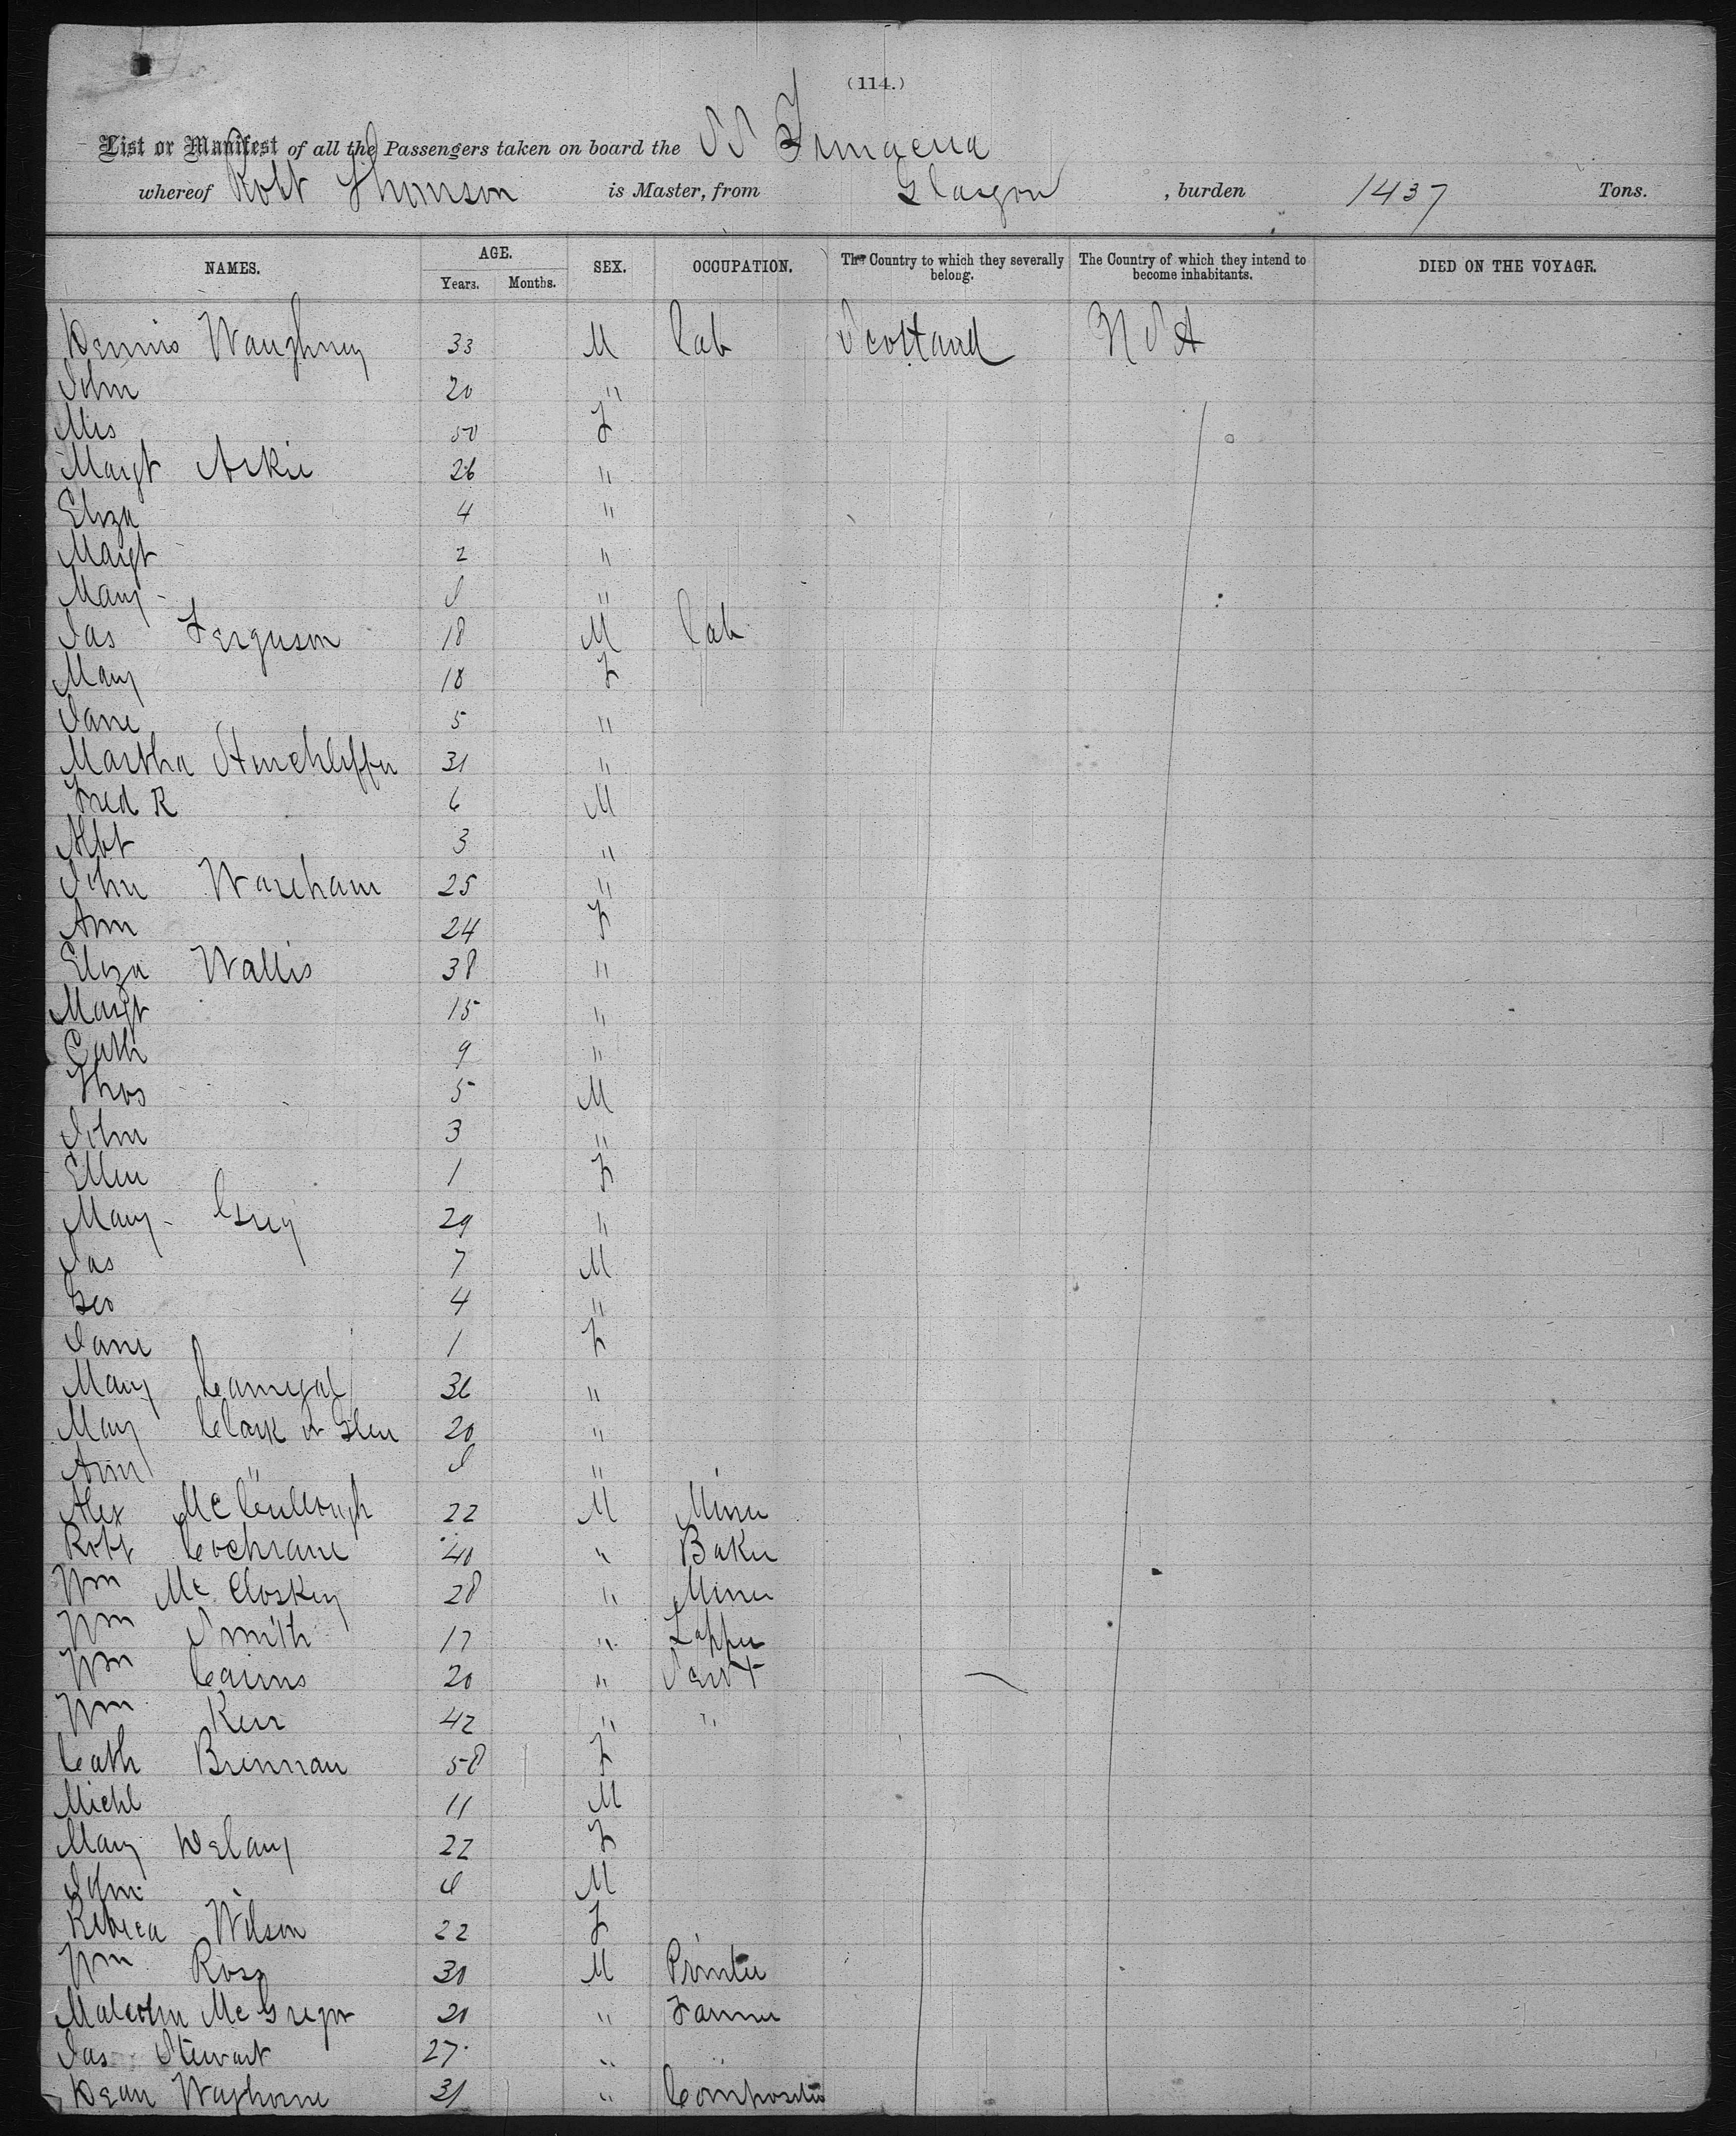 (114.)
List or Manifest of all the Passengers taken on board the SS
whereof Robt Thomson is Master, from Glasgow, burden 1437 Tons.
NAMES. AGE. SEX. OCCUPATION. The Country to which they severally belong. The Country of which they intend to become inhabitants. DIED ON THE VOYAGE.
Years. Months.
Dennis Waughney 33 M Lab Scotland USA
John 20 "
Mrs 50 F
Margt Askie 26 "
Eliza 4 "
Margt 2 "
Mary "
Jas Ferguson 18 M Lab
Mary 18 F
Jane 5 "
Martha 31 "
Fred R 6 M
Albt 3 "
John Wareham 25 "
Ann 24 F
Eliza Wallis 38 "
Margt 15 "
Cath 9 "
Thos 5 M
John 3 "
Ellen 1 F
Mary Grey 29 "
Jas 7 M
Geo 4 "
Jane 1 F
Mary 36 "
Mary Clark or Glen 20 "
Ann " "
Alex McCullough 22 M Miner
Robt Cochrane 40 " Baker
Wm McCloskey 28 " Miner
Wm Smith 17 " Lapper
Wm Cairns 20 " Servt
Wm Kerr 42 " "
Cath Brennan 58 F
Michl 11 M
Mary Delany 22 F
John M
Rebeca Wilson 22 F
Wm Ross 30 M Printer
Malcolm McGregor 21 " Farmer
Jas Stewart 27 "
Dean Wayhorne 31 " Compositor